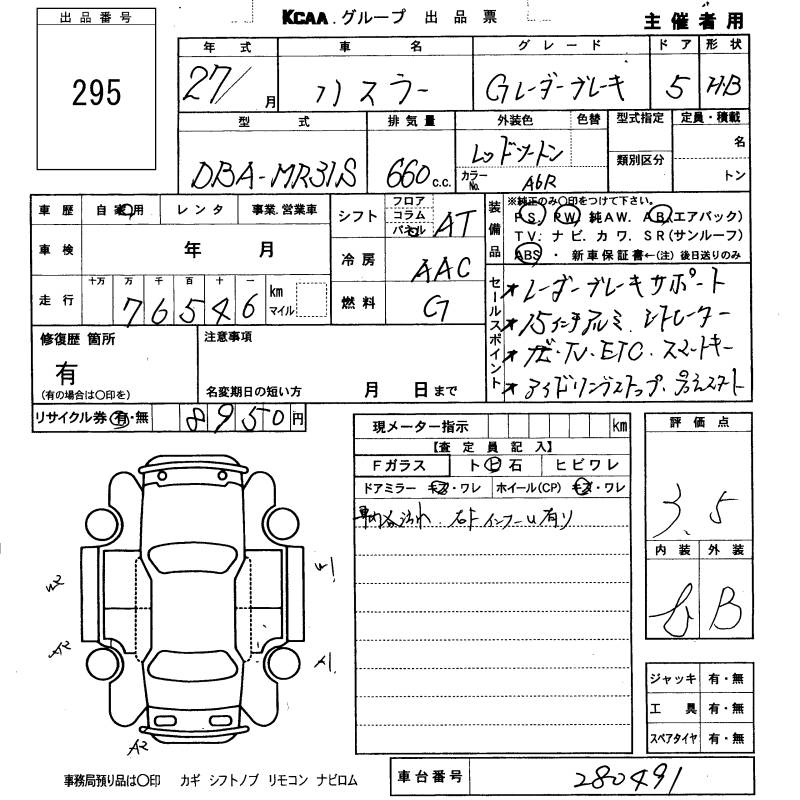 出品番号
295
KCAA.グループ 出品票
主催者用
年式 車名 グレード ドア 形状
27/ 月 ハスラー Gレーダーブレーキ 5 HB
型式 排気量 外装色 色替 型式指定 定員・積載
DBA-MR31S 660 c.c. レッドツートン
カラーNo. A6R
類別区分
名
トン
車歴 自家用 レンタ 事業.営業車
車検 年 月
走行 十万 万 千 百 十 一
76546 km マイル
シフト フロア コラム パネル AT
冷房 AAC
燃料 G
装備品
※純正のみ○印をつけて下さい。
PS. PW. 純AW. AB(エアバック)
TV: ナビ. カワ. SR(サンルーフ)
ABS ・ 新車保証書←(注)後日送りのみ
セールスポイント
★レーダーブレーキサポート
★15インチアルミ. シートヒーター
★ナビ・TV・ETC. スマートキー
★アイドリングストップ.
修復歴 箇所
有
(有の場合は○印を)
注意事項
名変期日の短い方 月 日まで
リサイクル券 有・無 8950円
現メーター指示 km
【査定員記入】
Fガラス ト ビ 石 ヒビワレ
ドアミラー キズ・ワレ ホイール(CP) キズ・ワレ
車内汚れ 有り
評価点
3.5
内装 外装
B
ジャッキ 有・無
工具 有・無
スペアタイヤ 有・無
W2
W1
A2
A1
A2
事務局預り品は○印 カギ シフトノブ リモコン ナビロム
車台番号 280491